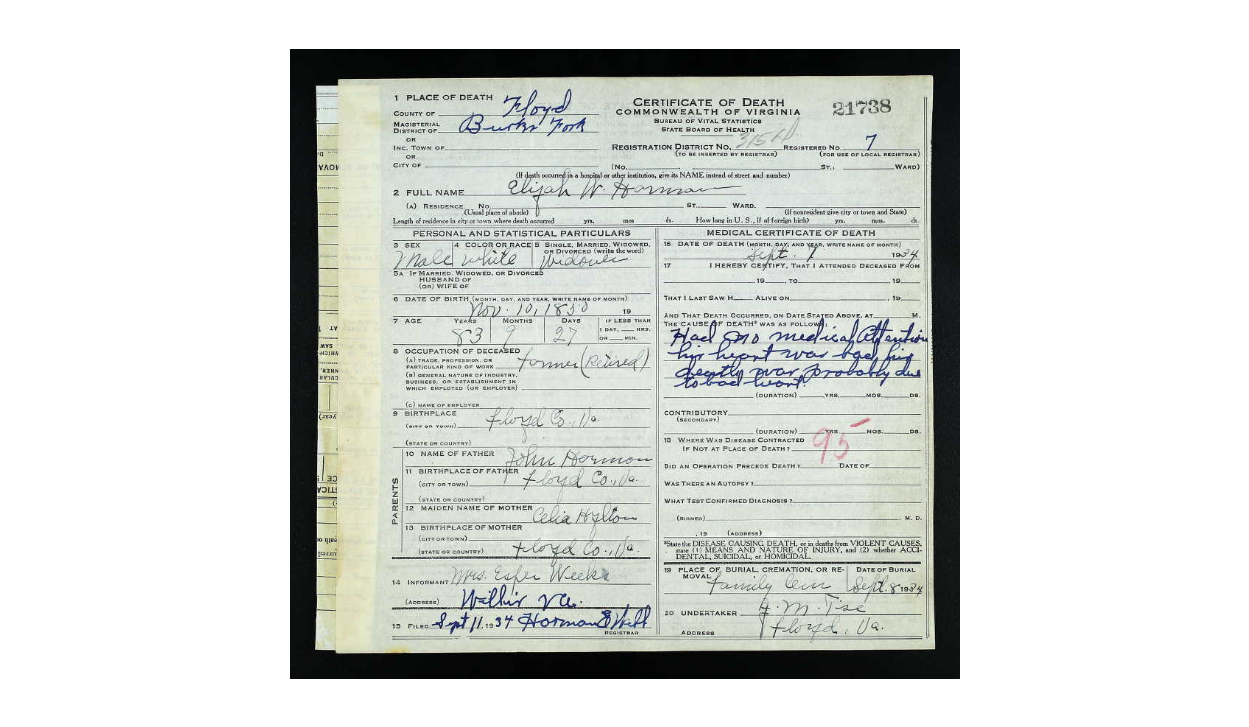 1 PLACE OF DEATH
COUNTY OF Floyd
MAGISTERIAL DISTRICT OF Burks Fork
OR
INC. TOWN OF
OR
CITY OF
CERTIFICATE OF DEATH
COMMONWEALTH OF VIRGINIA
BUREAU OF VITAL STATISTICS
STATE BOARD OF HEALTH
21738
REGISTRATION DISTRICT NO. 315 REGISTERED NO 7
(TO BE INSERTED BY REGISTRAR) (FOR USE OF LOCAL REGISTRAR)
(No. ST.; WARD)
(If death occurred in a hospital or other institution, give its NAME instead of street and number)
2 FULL NAME Elijah W. Harman
(A) RESIDENCE. No. ST. WARD.
(Usual place of abode) (If nonresident give city or town and State)
Length of residence in city or town where death occurred yrs. mos ds. How long in U. S., if of foreign birth? yrs. mos. ds.
PERSONAL AND STATISTICAL PARTICULARS
3 SEX 4 COLOR OR RACE 5 SINGLE, MARRIED, WIDOWED,
OR DIVORCED (write the word)
Male White Widower
5A IF MARRIED, WIDOWED, OR DIVORCED
HUSBAND OF
(OR) WIFE OF
6 DATE OF BIRTH (MONTH, DAY, AND YEAR, WRITE NAME OF MONTH)
Nov. 10, 1850 19
7 AGE YEARS MONTHS DAYS IF LESS THAN
1 DAY, HRS.
OR MIN.
83 9 27
8 OCCUPATION OF DECEASED
(A) TRADE, PROFESSION, OR
PARTICULAR KIND OF WORK Farmer (Retired)
(B) GENERAL NATURE OF INDUSTRY,
BUSINESS, OR ESTABLISHMENT IN
WHICH EMPLOYED (OR EMPLOYER)
(C) NAME OF EMPLOYER
9 BIRTHPLACE
(CITY OR TOWN) Floyd Co., Va.
(STATE OR COUNTRY)
PARENTS
10 NAME OF FATHER John Harman
11 BIRTHPLACE OF FATHER
(CITY OR TOWN) Floyd Co., Va.
(STATE OR COUNTRY)
12 MAIDEN NAME OF MOTHER Celia Hylton
13 BIRTHPLACE OF MOTHER
(CITY OR TOWN)
(STATE OR COUNTRY) Floyd Co., Va.
14 INFORMANT Mrs. Weeks
(ADDRESS) Va.
15 FILED Sept 11, 1934 Harman
REGISTRAR
MEDICAL CERTIFICATE OF DEATH
16 DATE OF DEATH (MONTH, DAY, AND YEAR, WRITE NAME OF MONTH)
Sept. 7 1934
17 I HEREBY CERTIFY, THAT I ATTENDED DECEASED FROM
19 , TO 19
THAT I LAST SAW H ALIVE ON , 19
AND THAT DEATH OCCURRED, ON DATE STATED ABOVE, AT M.
THE CAUSE OF DEATH* WAS AS FOLLOWS:
Had no medical attention
his heart was bad, his
death was probably due
to bad heart
(DURATION) YRS. MOS. DS.
CONTRIBUTORY
(SECONDARY)
(DURATION) YRS. MOS. DS.
95
18 WHERE WAS DISEASE CONTRACTED
IF NOT AT PLACE OF DEATH?
DID AN OPERATION PRECEDE DEATH? DATE OF
WAS THERE AN AUTOPSY?
WHAT TEST CONFIRMED DIAGNOSIS?
(SIGNED) M. D.
, 19 (ADDRESS)
*State the DISEASE CAUSING DEATH, or in deaths from VIOLENT CAUSES,
state (1) MEANS AND NATURE OF INJURY, and (2) whether ACCI-
DENTAL, SUICIDAL, or HOMICIDAL.
19 PLACE OF BURIAL, CREMATION, OR RE-
MOVAL DATE OF BURIAL
Family Cem Sept. 8 1934
20 UNDERTAKER M.
ADDRESS Floyd, Va.